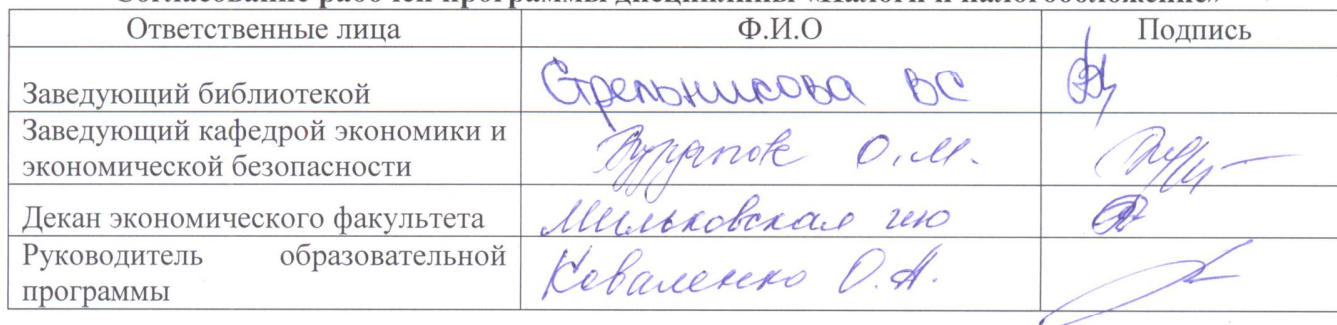 Согласование рабочей программы дисциплины «Налоги и налогообложение»
Ответственные лица Ф.И.О Подпись
Заведующий библиотекой Стрельникова ВС
Заведующий кафедрой экономики и
экономической безопасности О.М.
Декан экономического факультета Мильковская
Руководитель образовательной
программы Коваленко О.А.